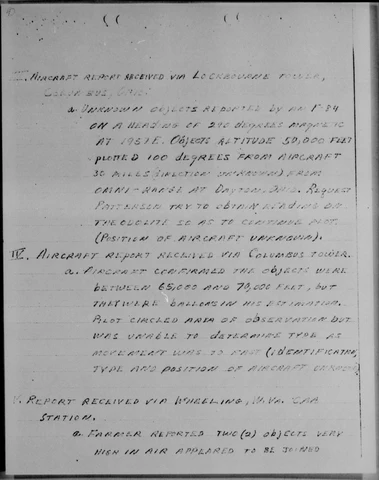 III. AIRCRAFT REPORT RECEIVED VIA LOCKBOURNE TOWER,
COLUMBUS, OHIO:
a. UNKNOWN OBJECTS REPORTED BY AN F-84
ON A HEADING OF 290 DEGREES MAGNETIC
AT 1951E. OBJECTS ALTITUDE 50,000 FEET
PLOTED 100 DEGREES FROM AIRCRAFT
30 MILES (DIRECTION UNKNOWN) FROM
OMNI-RANGE AT DAYTON, OHIO. REQUEST
PATTERSON TRY TO OBTAIN READING ON
THEODOLITE SO AS TO CONTINUE PLOT.
(POSITION OF AIRCRAFT UNKNOWN).
IV. AIRCRAFT REPORT RECEIVED VIA COLUMBUS TOWER.
a. AIRCRAFT CONFIRMED THE OBJECTS WERE
BETWEEN 65,000 AND 70,000 FEET, BUT
THEY WERE BALLOONS IN HIS ESTIMATION.
PILOT CIRCLED AREA OF OBSERVATION BUT
WAS UNABLE TO DETERMINE TYPE AS
MOVEMENT WAS TO FAST (IDENTIFICATION,
TYPE AND POSITION OF AIRCRAFT UNKNOWN)
V. REPORT RECEIVED VIA WHEELING, W.VA. CAA
STATION.
a. FARMER REPORTED TWO (2) OBJECTS VERY
HIGH IN AIR APPEARED TO BE JOINED